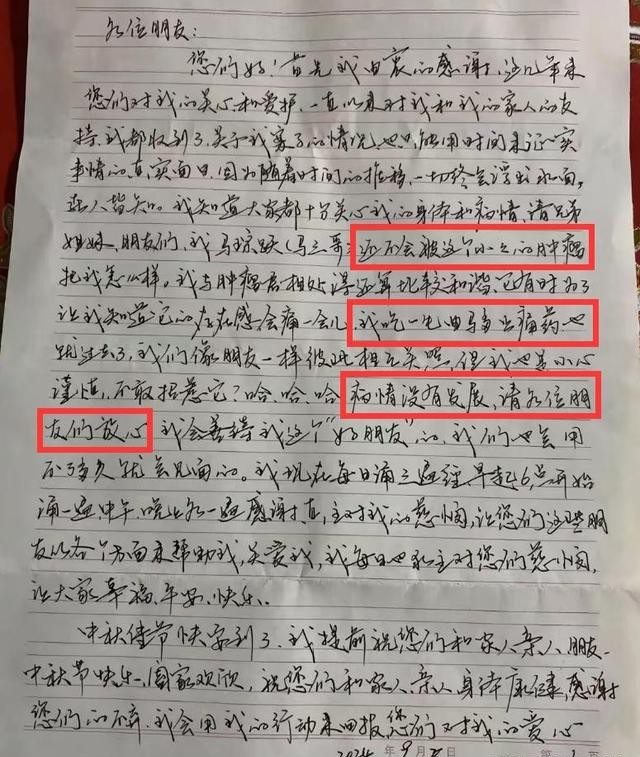 各位朋友:
您们好!首先我由衷的感谢,这几年来
您们对我的关心和爱护,一直以来对我和我的家人的支
持,我都收到了,关于我案子的情况也只能用时间来证实
事情的真实面目,因为随着时间的推移,一切终会浮出水面,
世人皆知。我知道大家都十分关心我的身体和病情,请兄弟
姐妹、朋友们,我马 (马三哥)还不会被这个小小的肿瘤
把我怎么样。我与肿瘤君相处得还算比较和谐,它有时为了
让我知道它的存在感会痛一会儿,我吃一些 止痛药也
就过去了,我们像朋友一样彼此相互关照,但我也是小心
谨慎,不敢招惹它?哈、哈、哈,病情没有发展,请各位朋
友们放心,我会善待我这个"好朋友"的,我们也会用
不了多久就会见面的。我现在每日诵三遍经早起6点开始
诵一遍中午、晚上各一遍感谢真主对我的慈悯,让您们这些朋
友以各个方面来帮助我,关爱我,我每日也求主对您们慈悯,
让大家幸福、平安、快乐。
中秋佳节快要到了,我提前祝您们和家人、亲人、朋友、
中秋节快乐、阖家欢欣,祝您们和家人、亲人身体康健,感谢
您们的不弃,我会用我的行动来回报您们对我的爱心
2024年9月 日
第1页